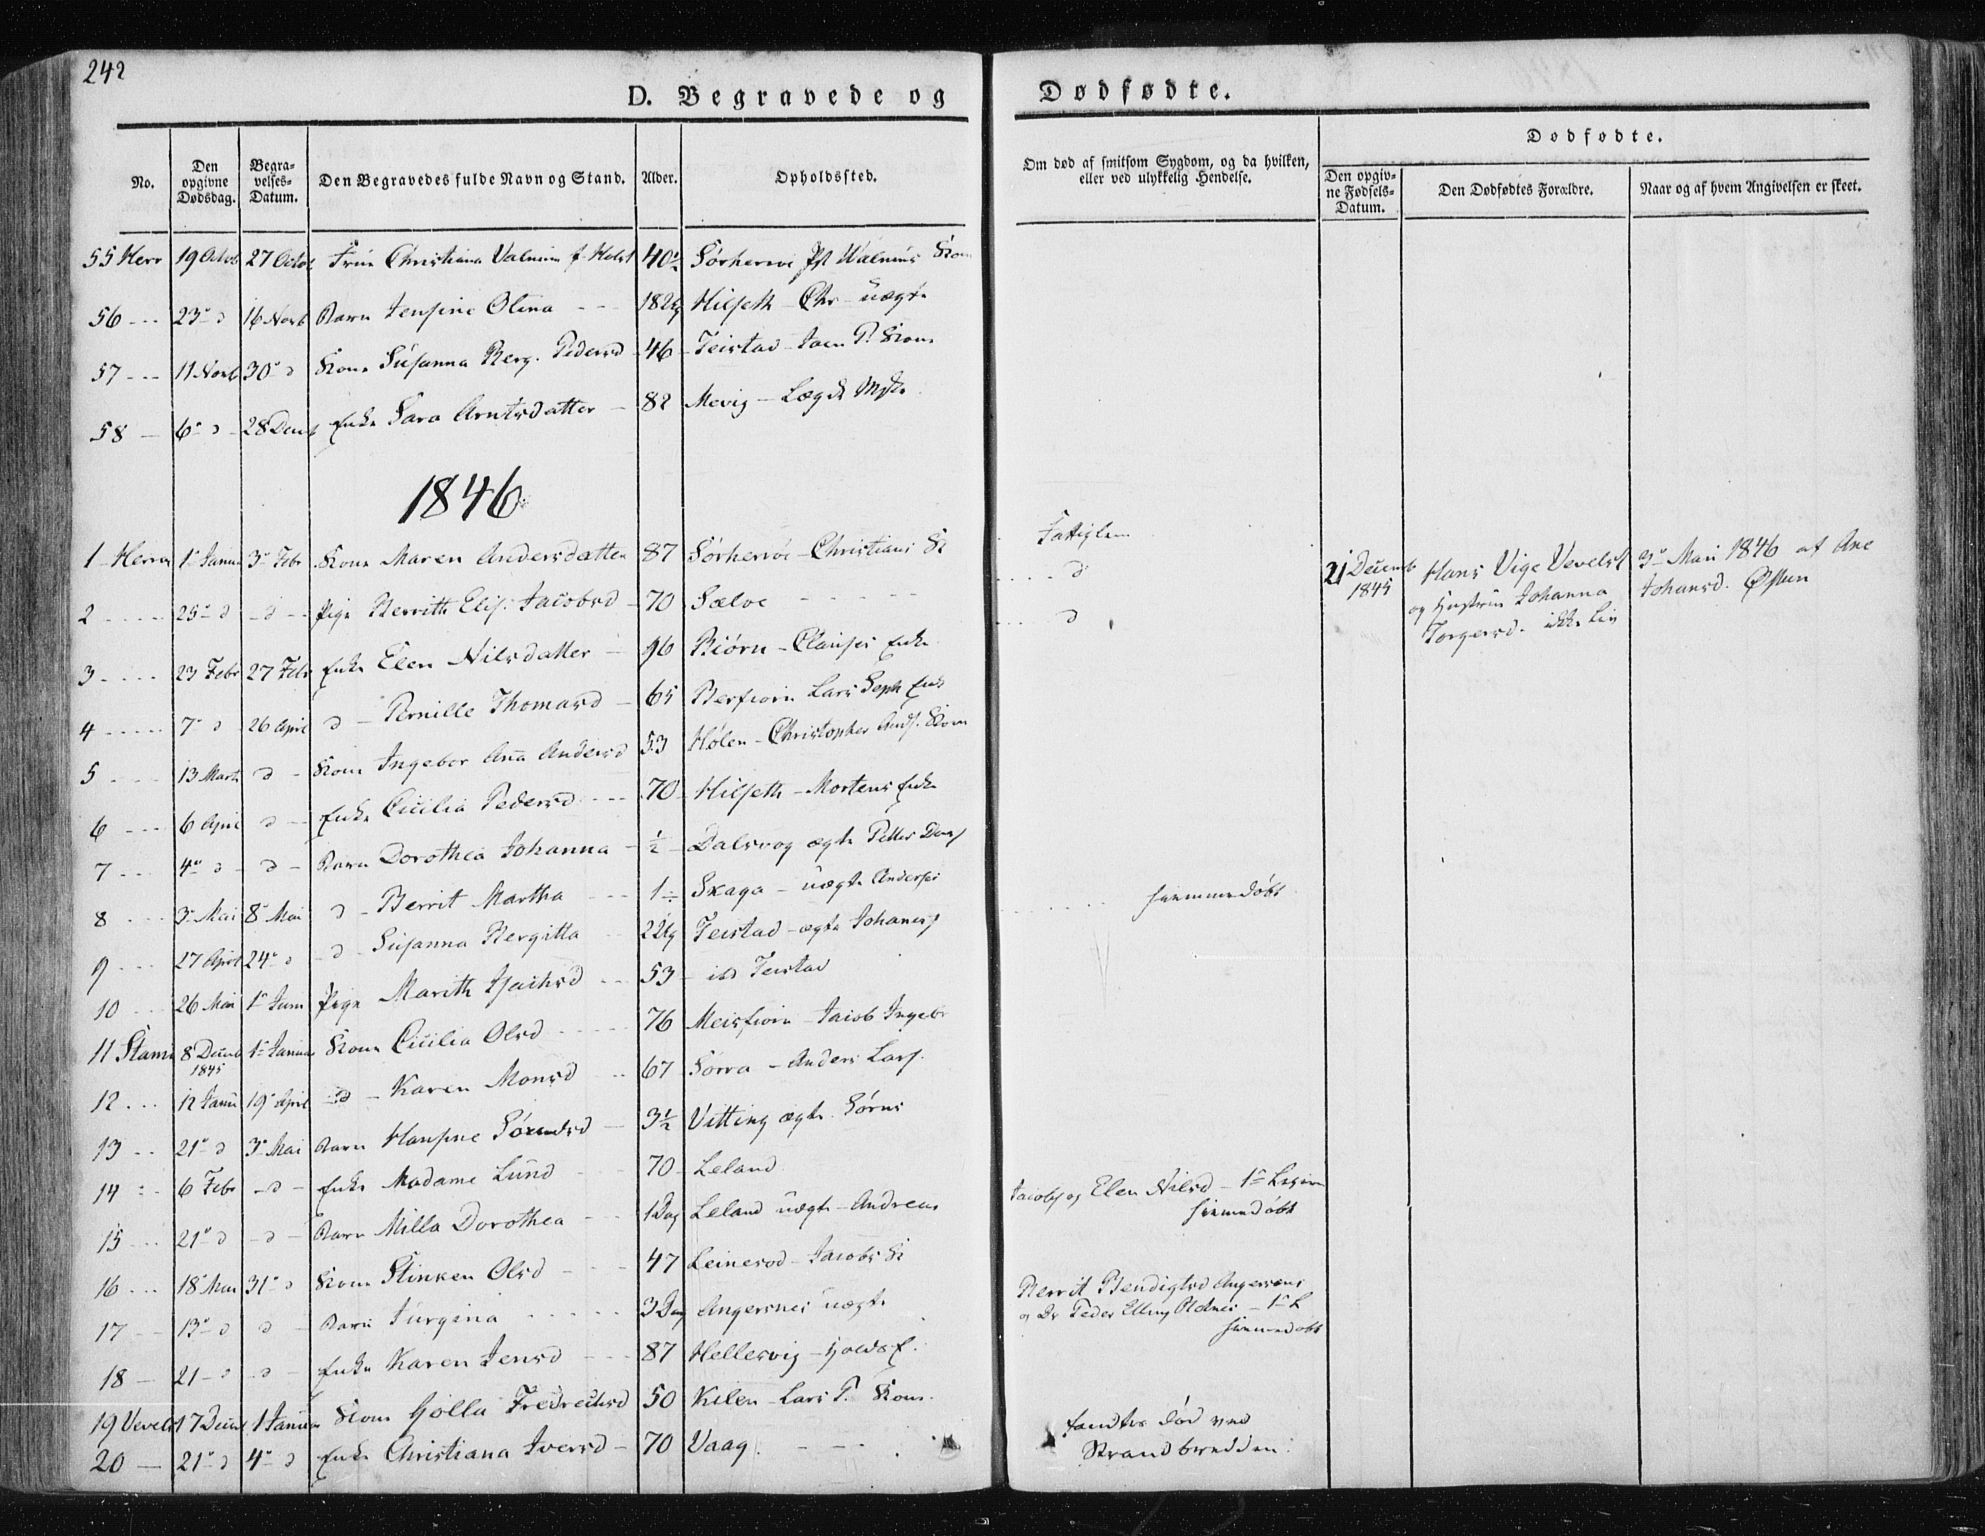 242
D. Begravede og Dødfødte.
No. Den opgivne Dødsdag. Begravelses-Datum. Den Begravedes fulde Navn og Stand. Alder. Opholdssted. Om død af smitsom Sygdom, og da hvilken, eller ved ulykkelig Hendelse. Dødfødte. Den opgivne Fødsels-Datum. Den Dødfødtes Forældre. Naar og af hvem Angivelsen er skeet.
55 Herr 19 Octob 27 Octob Frue Christiana Valnum f. Holst 40½ Sørherrøe Pst Walnums Kone
56 --- 23 d 16 Novb Barn Jensine Olina --- 18 Dg Hilseth - Chr - uægte
57 --- 11 Novb 30 d Kone Susanna Berg. Pedersd 46 Teistad - P. Kone
58 — 6 d 28 Decb Enke Sara Arntsdatter — 82 Mevig — Lægd
1846
1 - Herrø 1 Janu 3 Febr Kone Maren Andersdatter 87 Sørherrøe - Christians K Fattiglem
2 ---- 25 d - d - Pige Berrith Elis. Jacobsd - 70 Sælve ---- d
3 ---- 23 Febr 27 Febr Enke Elen Nilsdatter - 96 Biørn - Clauses Enke d
4 ---- 7 d 26 April d - Pernille Thomasd - 65 Berfiorn Lars Seph Enk
5 --- 13 Marts d - Kone Ingebor Ana Andersd 53 Hølen - Christopher Ands. Kone
6 --- 6 April d -- Enke Cicilia Pedersd --- 70 - Hilseth - Mortens Enke
7 --- 4 d - d - Barn Dorothea Johanna - ½ - Dalsvog ægte Petter
8 --- 3 Mai 8 Mai d - Berrit Martha --- 1 Skaga - uægte Anders
9 --- 27 April 24 d - d - Susanna Bergitta -- 2 Dg Teistad - ægte Johans
10 --- 26 Mai 1 Juni Pige Marith --- 53 - Teistad
11 Stamn 8 Decb 1845 1 Januar Kone Cicilia Olsd ---- 76 Meisfiorn - Jacob Ingebr
12 --- 12 Janu 19 April d - Karen Monsd -- 67 Sørra - Anders Lars.
13 -- 21 d 3 Mai Barn Hansine Sørensd - 3½ Vitting ægte. Sørens
14 -- 6 Febr - d - Enke Madame Lund --- 70 - Leland
15 --- 21 d - d - Barn Milla Dorothea --- 1 Dag Leland uægte - Andreas
16 --- 18 Mar 31 d Kone Stinken Olsd --- 47 Leinesod - Jacobs K
17 -- 13 d d - Barn Jurgina ---- 3 Dag Angersnes uægte
18 - 21 - d - d - Enke Karen Jensd --- 87 Hellesvig -
19 Vevelst 17 Decb 1 Januar Kone Golla Fredrichsd 50 Kilen - Lars P. Kone.
20 — 21 d 4 d Enke Christiana Iversd - 70 Vaag. ---
hiemmedøbt
Jacobs og Elen Nilsd - 1
hiemmedøbt
Berrit Bendigtsd Angersnes
og Peder Elling - 1 L
hiemmedøbt
fandtes død ved
Strandbredden.
21 Decemb 1845 Hans Vige Vevelst og Hustrue Johanna Torgersd. ikke Liv
3 Mai 1846 af Ane Johansd.